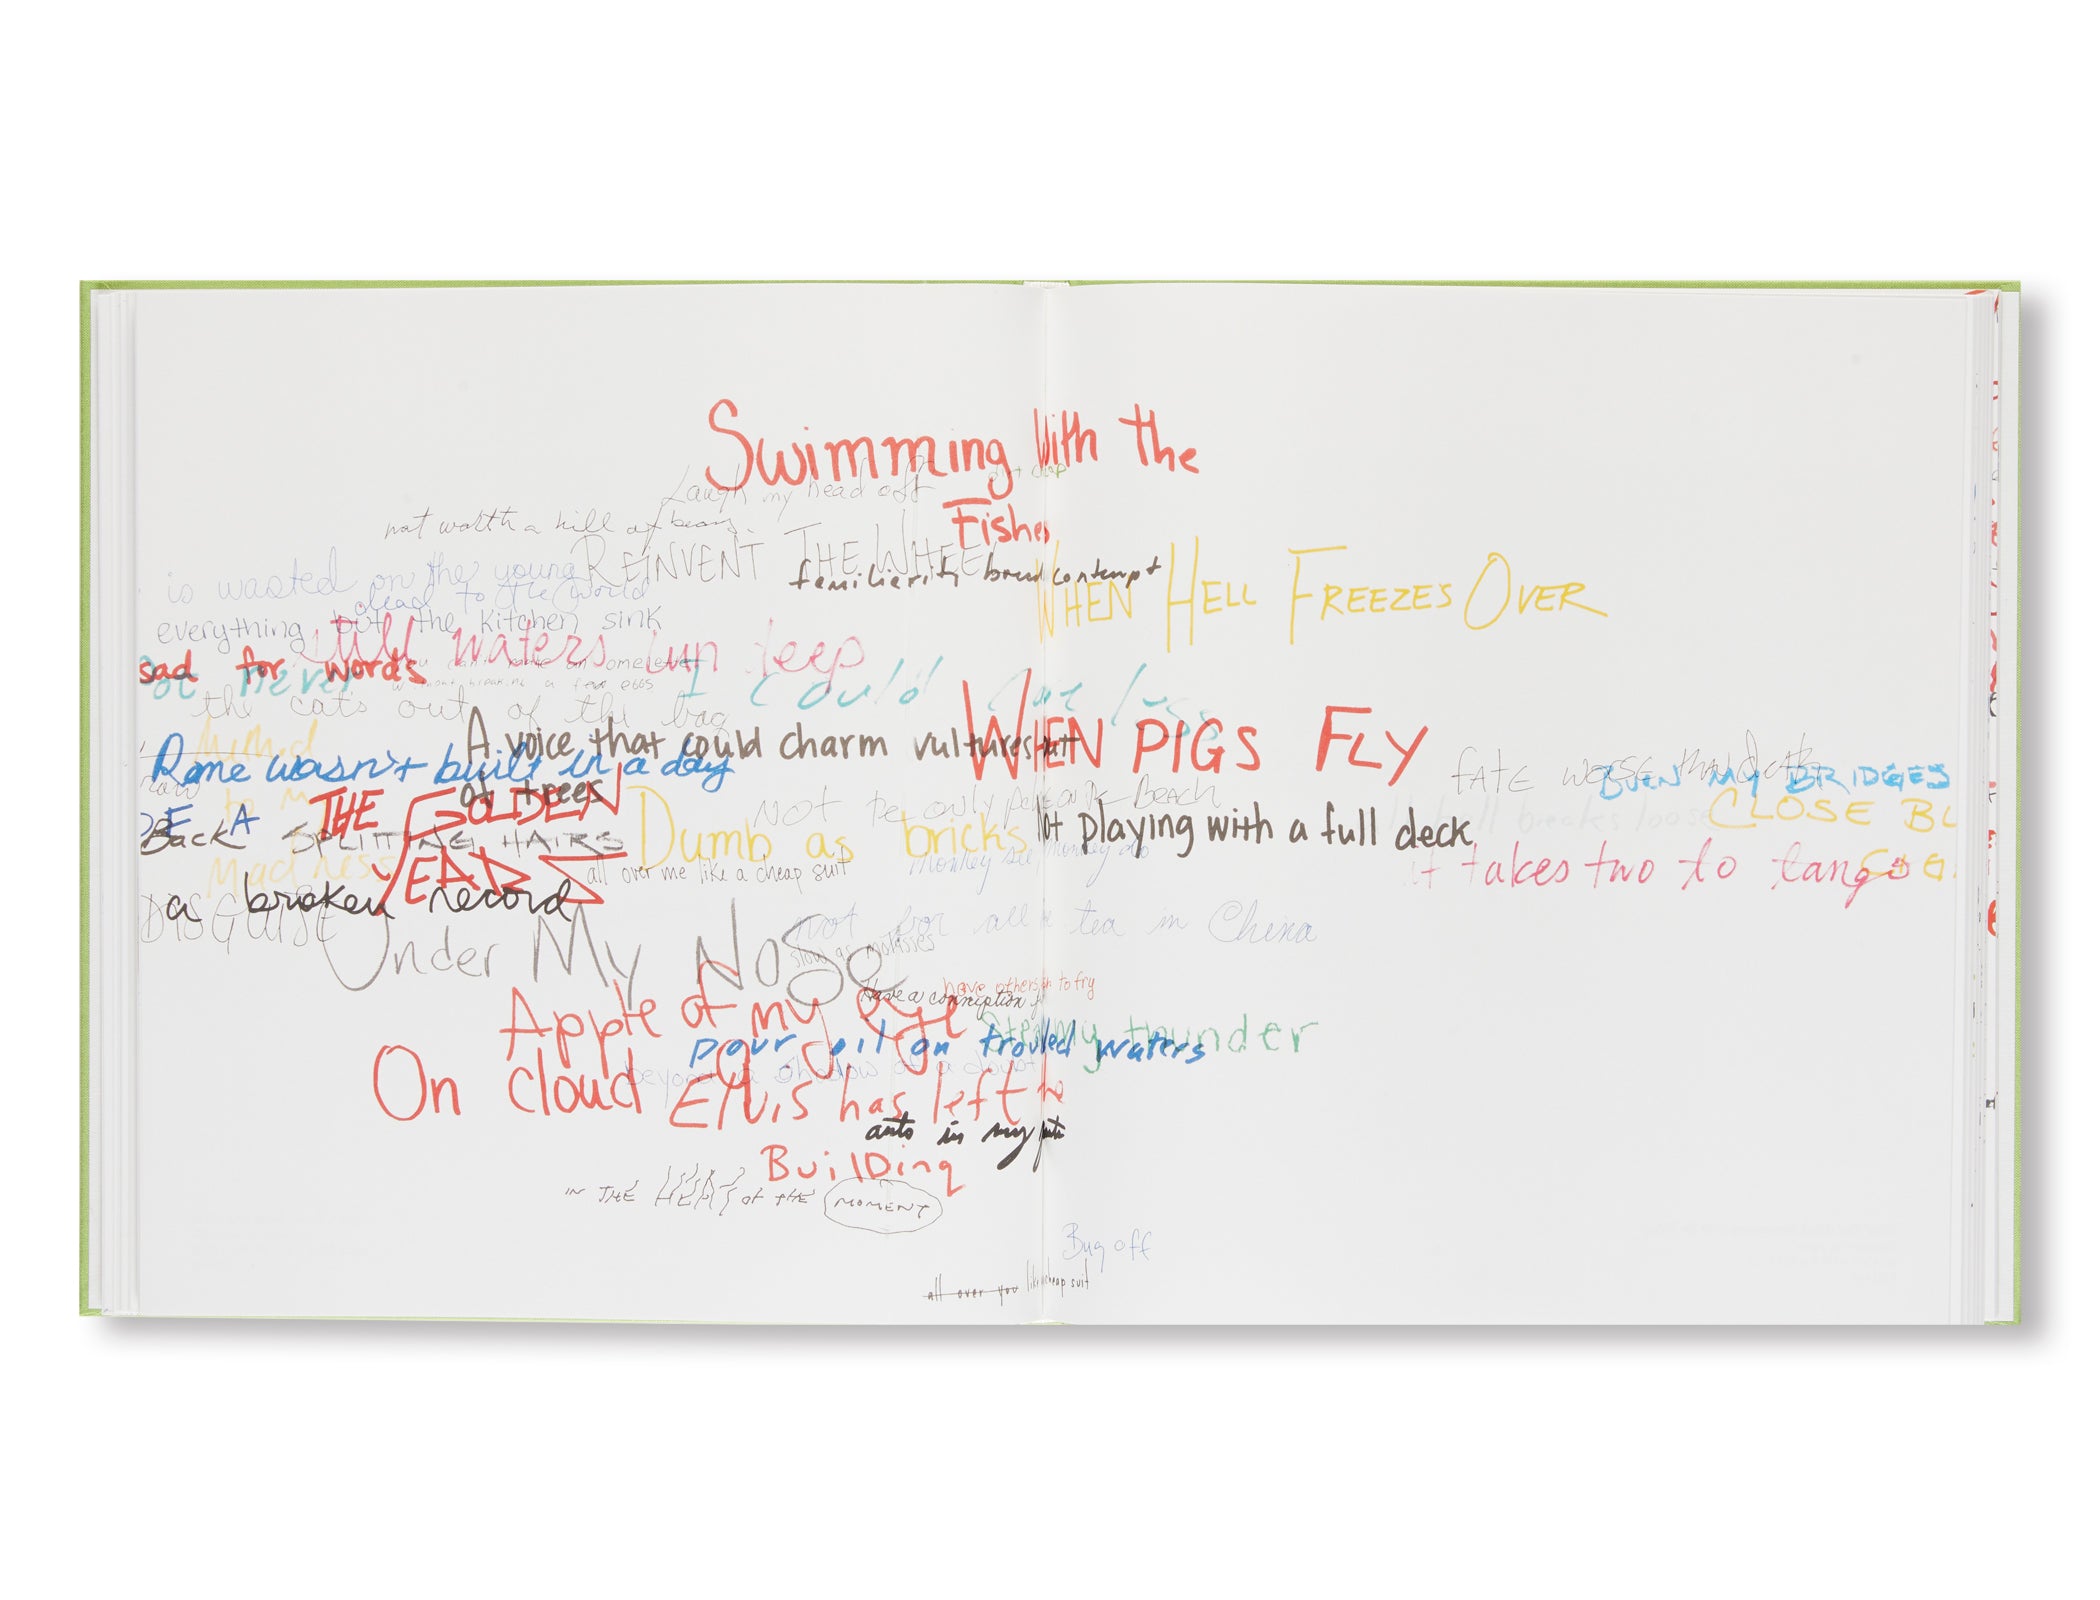 Swimming with the
Fishes
Laugh my head off
not worth a hill of beans.
REINVENT THE WHEEL
familiariti breed contempt
WHEN HELL FREEZES OVER
is wasted on the young
dead to the world
everything but the kitchen sink
still waters run deep
sad for words
you can't make an omelette
without breaking a few eggs
never
I could care less
the cats out of the bag
A voice that could charm vultures out
of trees
WHEN PIGS FLY
Rome wasn't built in a day
FATE WORSE than death
BURN MY BRIDGES
THE GOLDEN
YEARS
BE A
Back
SPLITTING HAIRS
Madness
Dumb as bricks
Not the only pebble on the Beach
Not playing with a full deck
all hell breaks loose
CLOSE BL
it takes two to tango
all over me like a cheap suit
monkey see monkey do
a broken record
DISGUISE
Under My Nose
not for all the tea in China
slow as molasses
have others to fry
Have a conniption
Apple of my eye
Steal my thunder
pour oil on trouled waters
beyond a shadow of a doubt
On cloud
Elvis has left
Building
ants in my
IN THE HEAT OF THE MOMENT
Bug off
all over you like a cheap suit